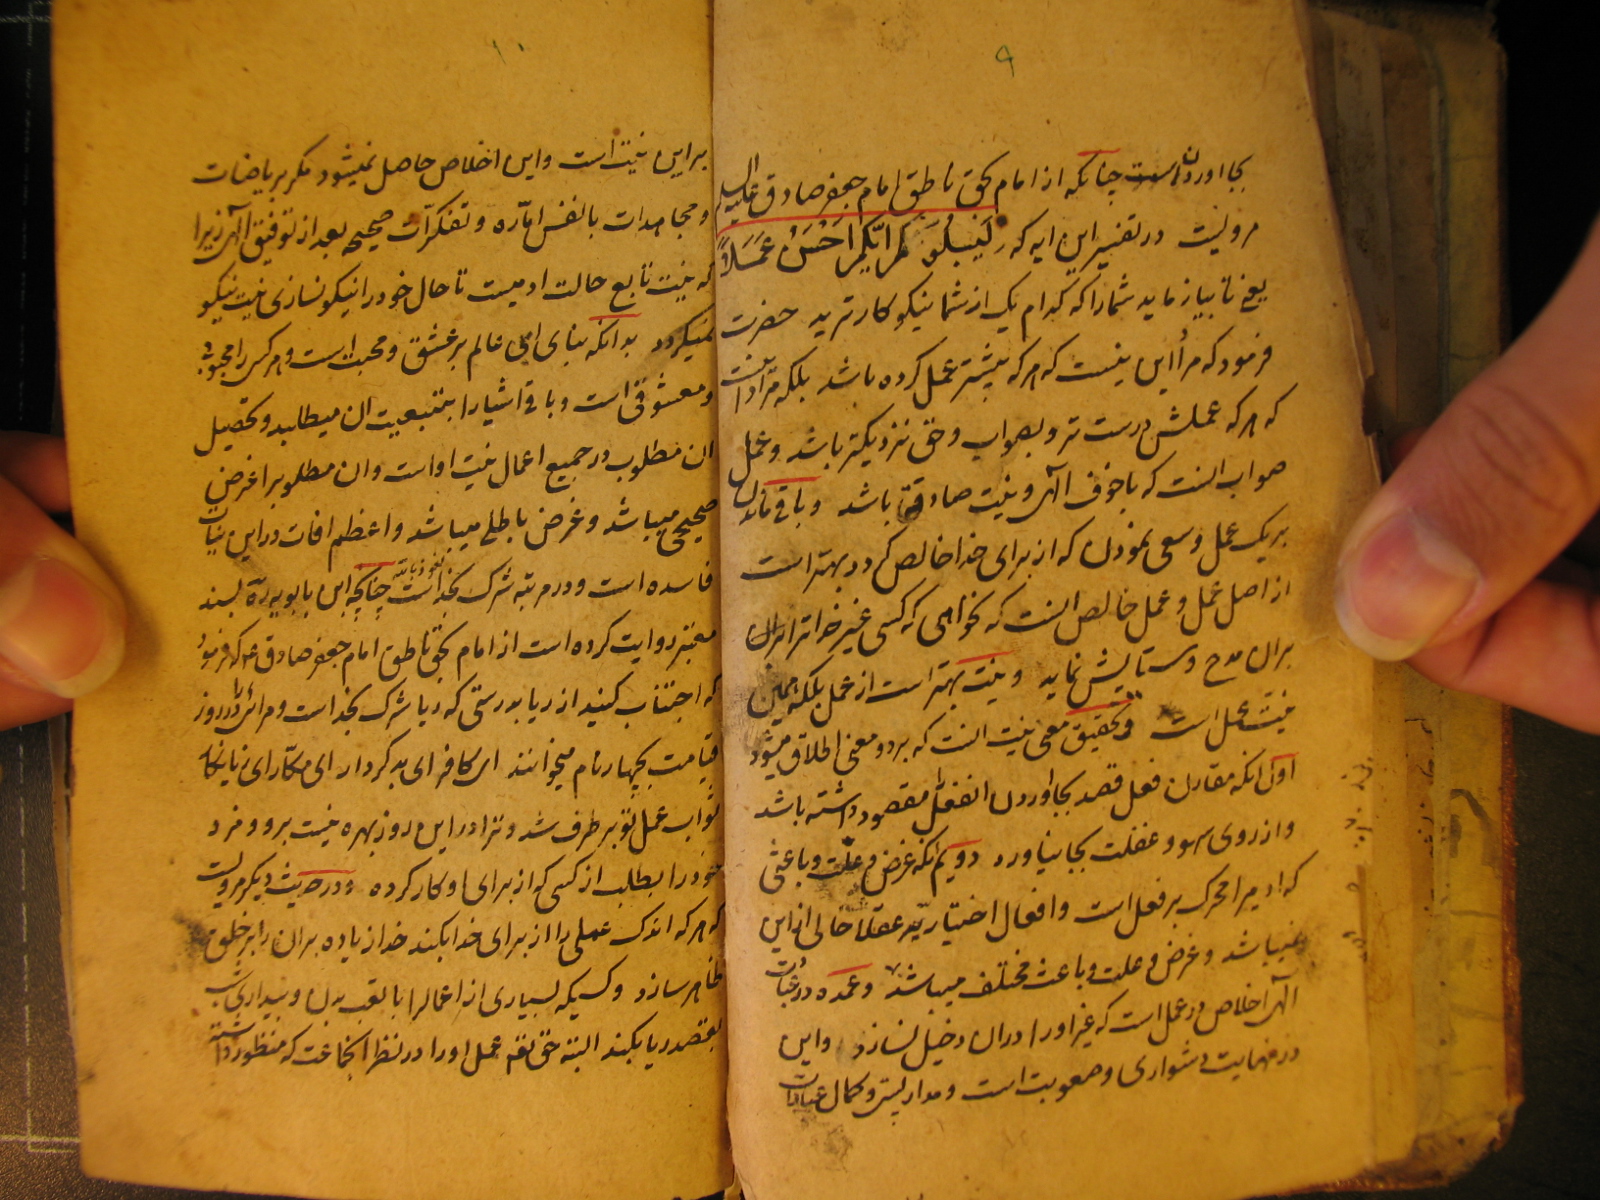 ۹
بجا اوردن است چنانکه از امام بحق ناطق امام جعفر صادق علیه السلم
مرویست در تفسیر این ایه که لیبلوکم ایکم احسن عملا
یعنی تا بیازماید شما را که کدام یک از شما نیکو کارترید حضرت
فرمود که مراد این نیست که هر که بیشتر عمل کرده باشد بلکه مراد انست
که هر که عملش درست تر و بصواب و حق نزدیکتر باشد و عمل
صواب انست که با خوف الهی و نیت صادق باشد و باقی ماندن
بر یک عمل و سعی نمودن که از برای خدا خالص گردد بهتر است
از اصل عمل و عمل خالص انست که نخواهی که کسی غیر خدا ترا بران
بران مدح و ستایش نماید و نیت بهتر است از عمل بلکه همین
نیت عمل است و تحقیق معنی نیت انست که بر دو معنی اطلاق میشود
اول انکه مقارن فعل قصد بجا اوردن انفعل مقصود داشته باشد
و از روی سهو و غفلت بجا نیاورد دویم انکه غرض و علت و باعثی
که ادمیرا محرک بر فعل است و افعال اختیاریه عقلا خالی از این
نمیباشد و غرض و علت و باعث مختلف میباشد و عمده در عبادت
الهی اخلاص در عمل است که غیر او را در ان دخیل نسازد و این
در نهایت دشواری و صعوبت است و مدار پستی و کمال عبادات
۱۰
بر این نیت است و این اخلاص حاصل نمیشود مکر بریاضات
و مجاهدات با نفس اماره و تفکرات صحیحه بعد از توفیق الهی زیرا
که نیت تابع حالت ادمیست تا حال خود را نیکو نسازی نیت نیکو
نمیکردد بدانکه بنای این عالم بر عشق و محبت است و هر کس را محبوبی
و معشوقی است و باقی اشیا را بتبعیت ان میطلبد و تحصیل
ان مطلوب در جمیع اعمال نیت او است و ان مطلوب را غرض
صحیحی میباشد و غرض باطلی میباشد و اعظم افات در این نیات
فاسده است و در مرتبه شرک بخداست نعوذ بالله چنانچه ابن بابویه ره بسند
معتبر روایت کرده است از امام بحق ناطق امام جعفر صادق ع که فرمود
که اجتناب کنید از ریا بدرستی که ریا شرک بخداست و مرائی را در روز
قیامت بچهار نام میخوانند ای کافر ای بدکردار ای مکار ای زیانکار
ثواب عمل تو بر طرف شد و ترا در این روز بهره نیست برو و مزد
خود را بطلب از کسی که از برای او کار کرده و در حدیث دیکر مرویست
که هر که اندک عملی را از برای خدا بکند خدا زیاده بران را بر خلق
ظاهر سازد و کسیکه بسیاری از اعمالرا با تعب بدن و بیداری شب
بقصد ریا بکند البته حق تعم عمل او را در نظر انجماعت که منظور داشته